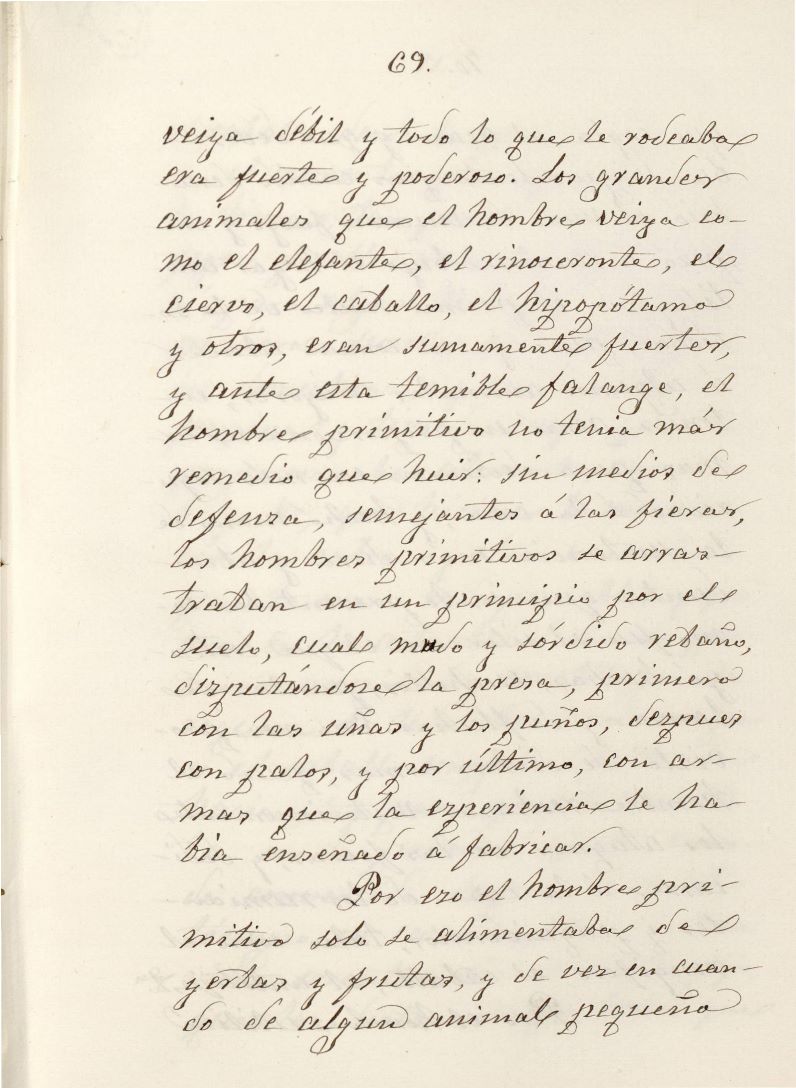 69.
veiya débil y todo lo que le rodeaba
era fuerte y poderoso. Los grandes
animales que el hombre veiya co-
mo el elefante, el rinoseronte, el
ciervo, el caballo, el hipopótamo
y otros, eran sumamente fuertes,
y ante esta temible falange, el
hombre primitivo no tenia más
remedio que huir: sin medios de
defenza, semejantes á las fieras,
los hombres primitivos se arras-
traban en un principio por el
suelo, cual mudo y sórdido rebaño,
dizputándose la presa, primero
con las uñas y los puños, dezpues
con palos, y por último, con ar-
mas que la ezperiencia le ha-
bia enseñado á fabricar.
Por ezo el hombre pri-
mitivo solo se alimentaba de
yerbas y frutas, y de vez en cuan-
do de algun animal pequeño